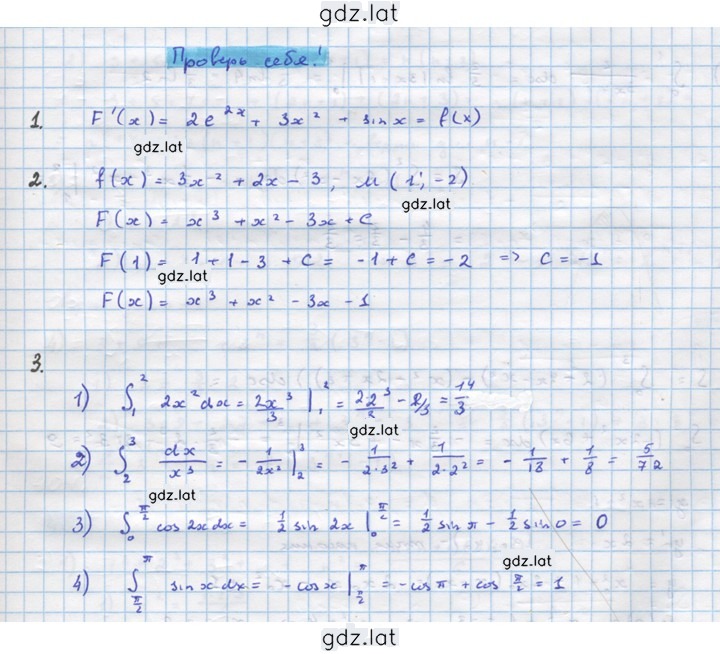 gdz.lat
Проверь себя!
1. F'(x) = 2e^{2x} + 3x² + sin x = f(x)
gdz.lat
2. f(x) = 3x² + 2x - 3, M (1; -2)
gdz.lat
F(x) = x³ + x² - 3x + C
F(1) = 1 + 1 - 3 + C = -1 + C = -2 => C = -1
gdz.lat
F(x) = x³ + x² - 3x - 1
3.
1) ∫₁² 2x² dx = 2x³/3 |₁² = 2·2³/3 - 2/3 = 14/3
gdz.lat
2) ∫₂³ dx/x³ = - 1/2x² |₂³ = - 1/2·3² + 1/2·2² = - 1/18 + 1/8 = 5/72
gdz.lat
3) ∫₀^{π/2} cos 2x dx = 1/2 sin 2x |₀^{π/2} = 1/2 sin π - 1/2 sin 0 = 0
gdz.lat
4) ∫_{π/2}^{π} sin x dx = - cos x |_{π/2}^{π} = - cos π + cos π/2 = 1
gdz.lat